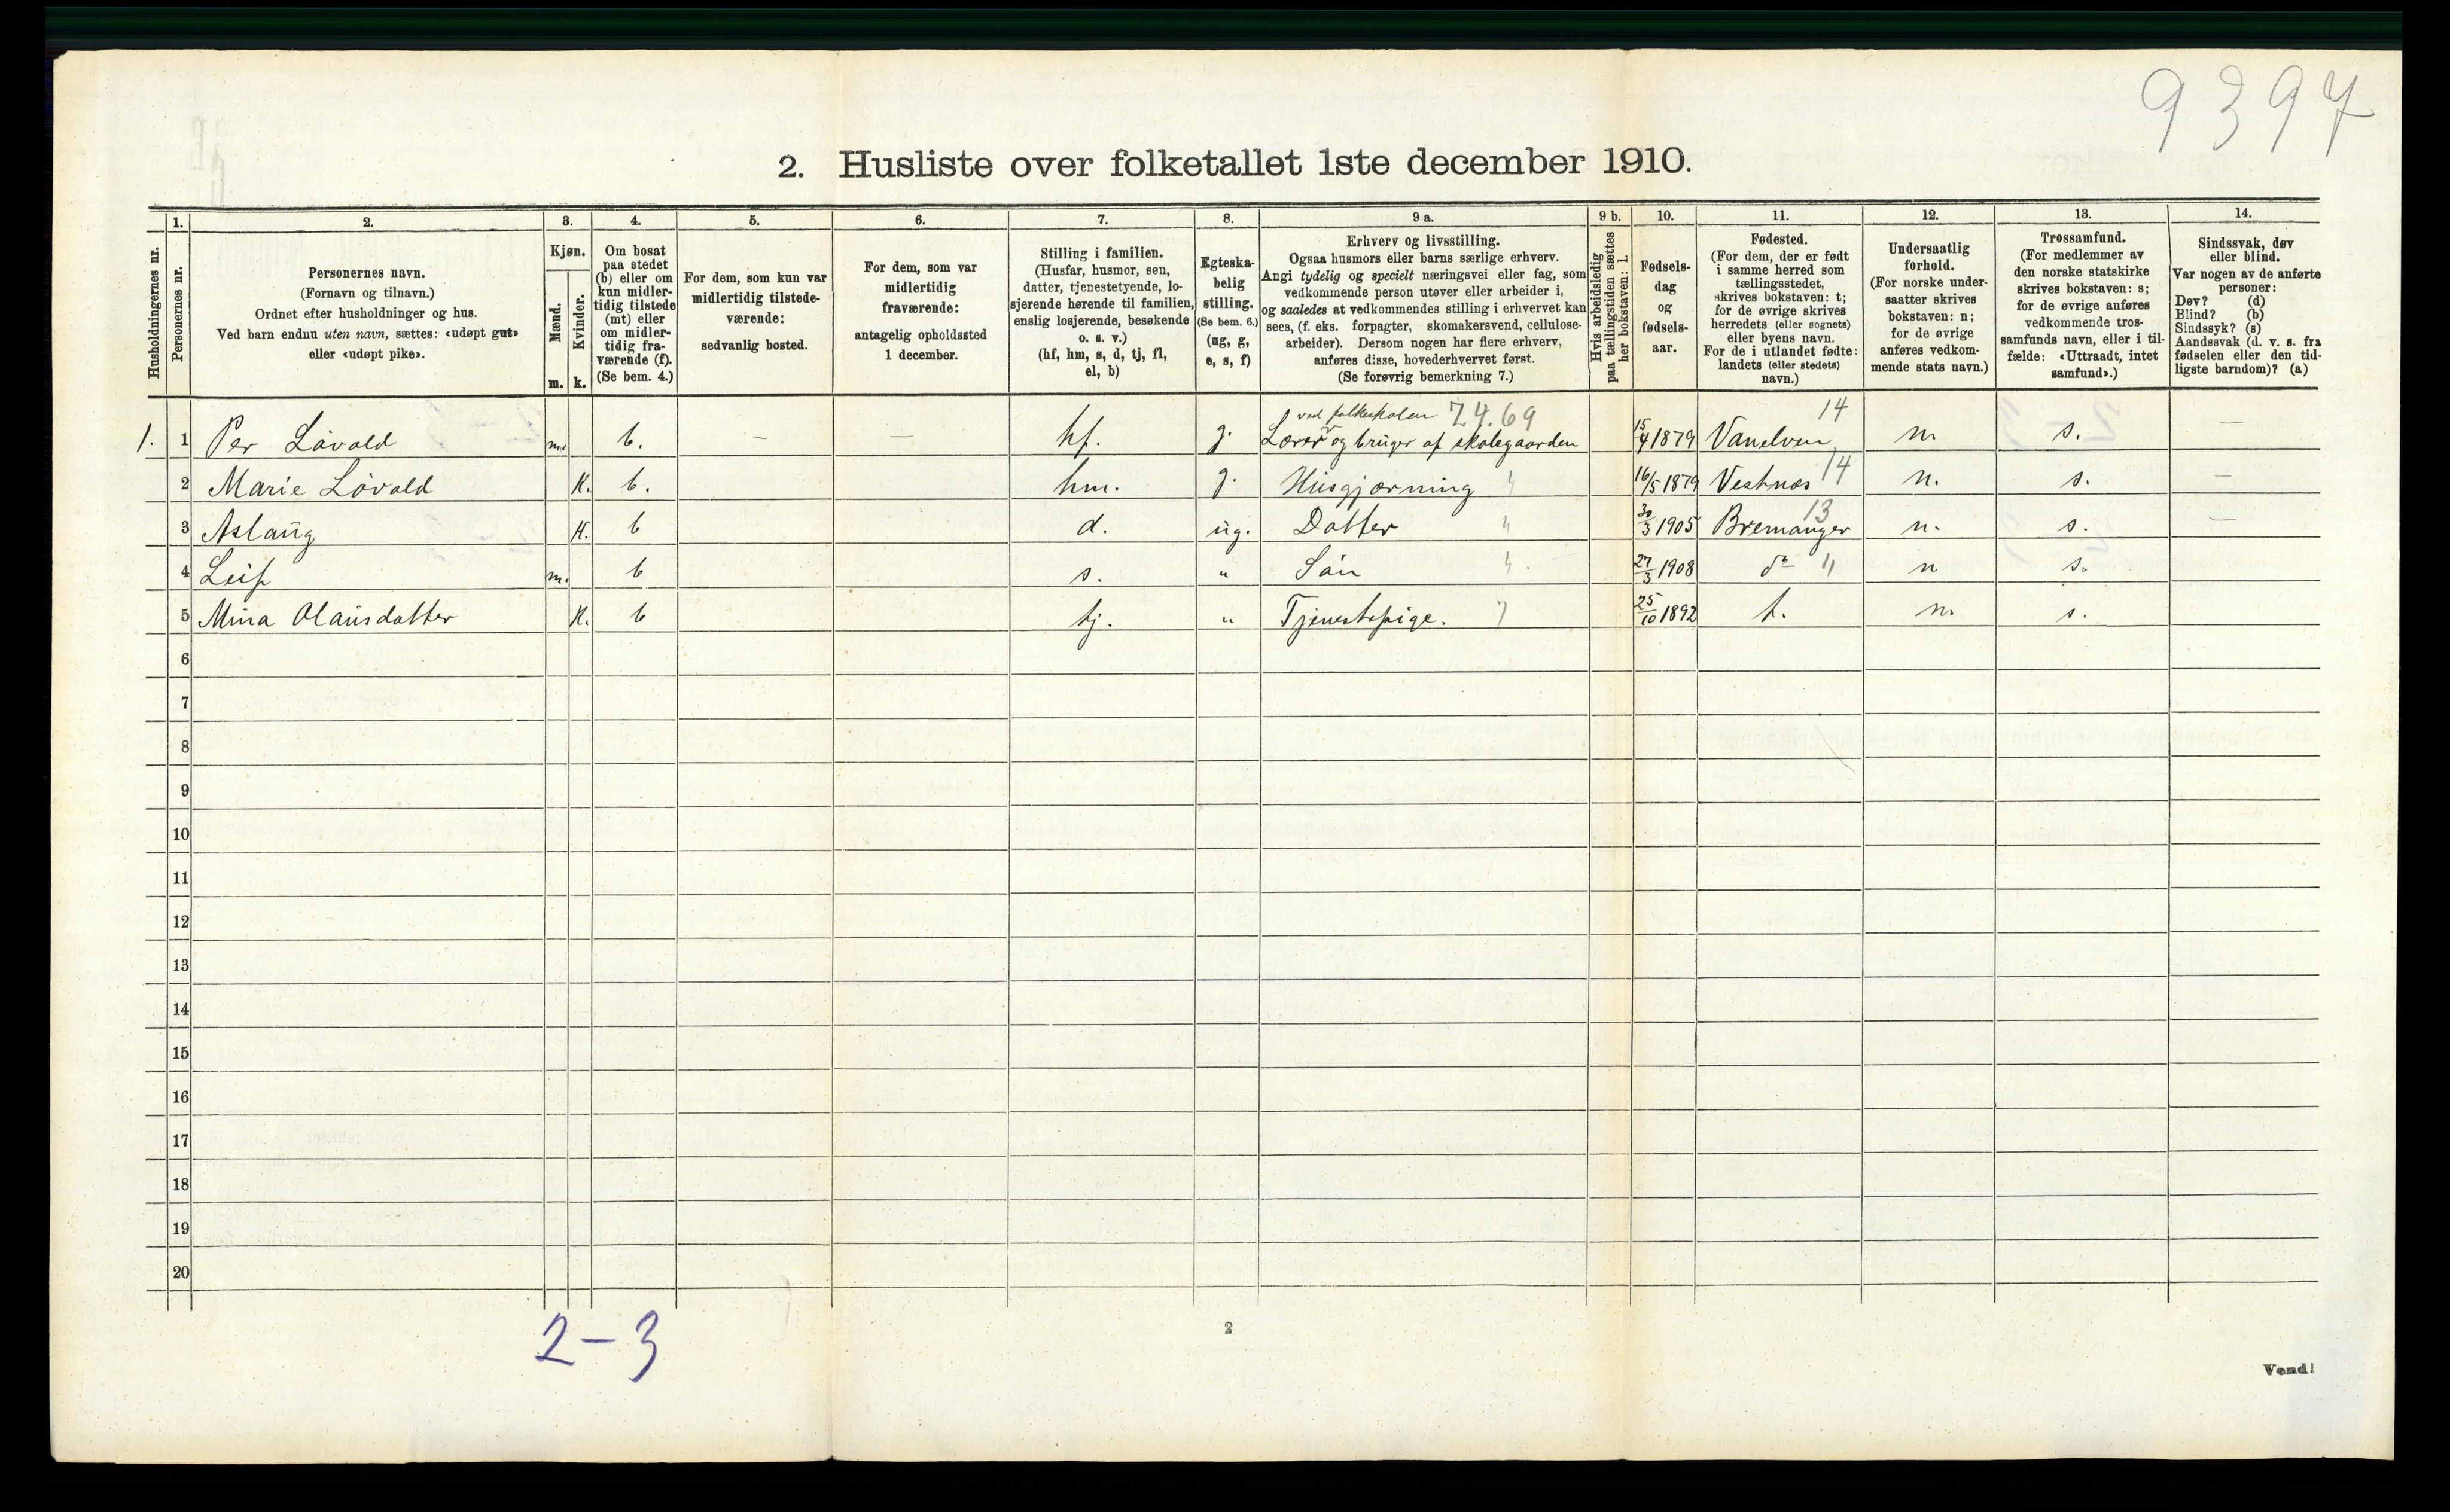 9397
2. Husliste over folketallet 1ste december 1910.
Husholdningernes nr.
1.
Personernes nr.
2.
Personernes navn.
(Fornavn og tilnavn.)
Ordnet efter husholdninger og hus.
Ved barn endnu uten navn, sættes: «udøpt gut»
eller «udøpt pike».
3.
Kjøn.
Mænd.
m.
Kvinder.
k.
4.
Om bosat
paa stedet
(b) eller om
kun midler-
tidig tilstede
(mt) eller
om midler-
tidig fra-
værende (f).
(Se bem. 4.)
5.
For dem, som kun var
midlertidig tilstede-
værende:
sedvanlig bosted.
6.
For dem, som var
midlertidig
fraværende:
antagelig opholdssted
1 december.
7.
Stilling i familien.
(Husfar, husmor, søn,
datter, tjenestetyende, lo-
sjerende hørende til familien,
enslig losjerende, besøkende
o. s. v.)
(hf, hm, s, d, tj, fl,
el, b)
8.
Egteska-
belig
stilling.
(Se bem. 6.)
(ug, g,
e, s, f)
9 a.
Erhverv og livsstilling.
Ogsaa husmors eller barns særlige erhverv.
Angi tydelig og specielt næringsvei eller fag, som
vedkommende person utøver eller arbeider i,
og saaledes at vedkommendes stilling i erhvervet kan
sees, (f. eks. forpagter, skomakersvend, cellulose-
arbeider). Dersom nogen har flere erhverv,
anføres disse, hovederhvervet først.
(Se forøvrig bemerkning 7.)
9 b.
Hvis arbeidsledig
paa tællingstiden sættes
her bokstaven: l.
10.
Fødsels-
dag
og
fødsels-
aar.
11.
Fødested.
(For dem, der er født
i samme herred som
tællingsstedet,
skrives bokstaven: t;
for de øvrige skrives
herredets (eller sognets)
eller byens navn.
For de i utlandet fødte:
landets (eller stedets)
navn.)
12.
Undersaatlig
forhold.
(For norske under-
saatter skrives
bokstaven: n;
for de øvrige
anføres vedkom-
mende stats navn.)
13.
Trossamfund.
(For medlemmer av
den norske statskirke
skrives bokstaven: s;
for de øvrige anføres
vedkommende tros-
samfunds navn, eller i til-
fælde: «Uttraadt, intet
samfund».)
14.
Sindssvak, døv
eller blind.
Var nogen av de anførte
personer:
Døv? (d)
Blind? (b)
Sindssyk? (s)
Aandssvak (d. v. s. fra
fødselen eller den tid-
ligste barndom)? (a)
ved folkeskolen 74.69 14
1. 1 Per Lövold m. b. — — hf. g. Lærer og bruger af skolegaarden 15/4 1879 Vanelven n. s. —
2 Marie Lövold K. b. hm. g. Husgjærning " 16/5 1879 Vestnæs 14 n. s. —
3 Aslaug K. b d. ug. Datter " 30/3 1905 Bremanger 13 n. s. —
4 Leif m. b s. " Sön " 27/3 1908 do " n s.
5 Mina Olausdatter K. b tj. " Tjenestepige. 7 25/10 1892 t. n. s.
6
7
8
9
10
11
12
13
14
15
16
17
18
19
20
2-3
2
Vend!